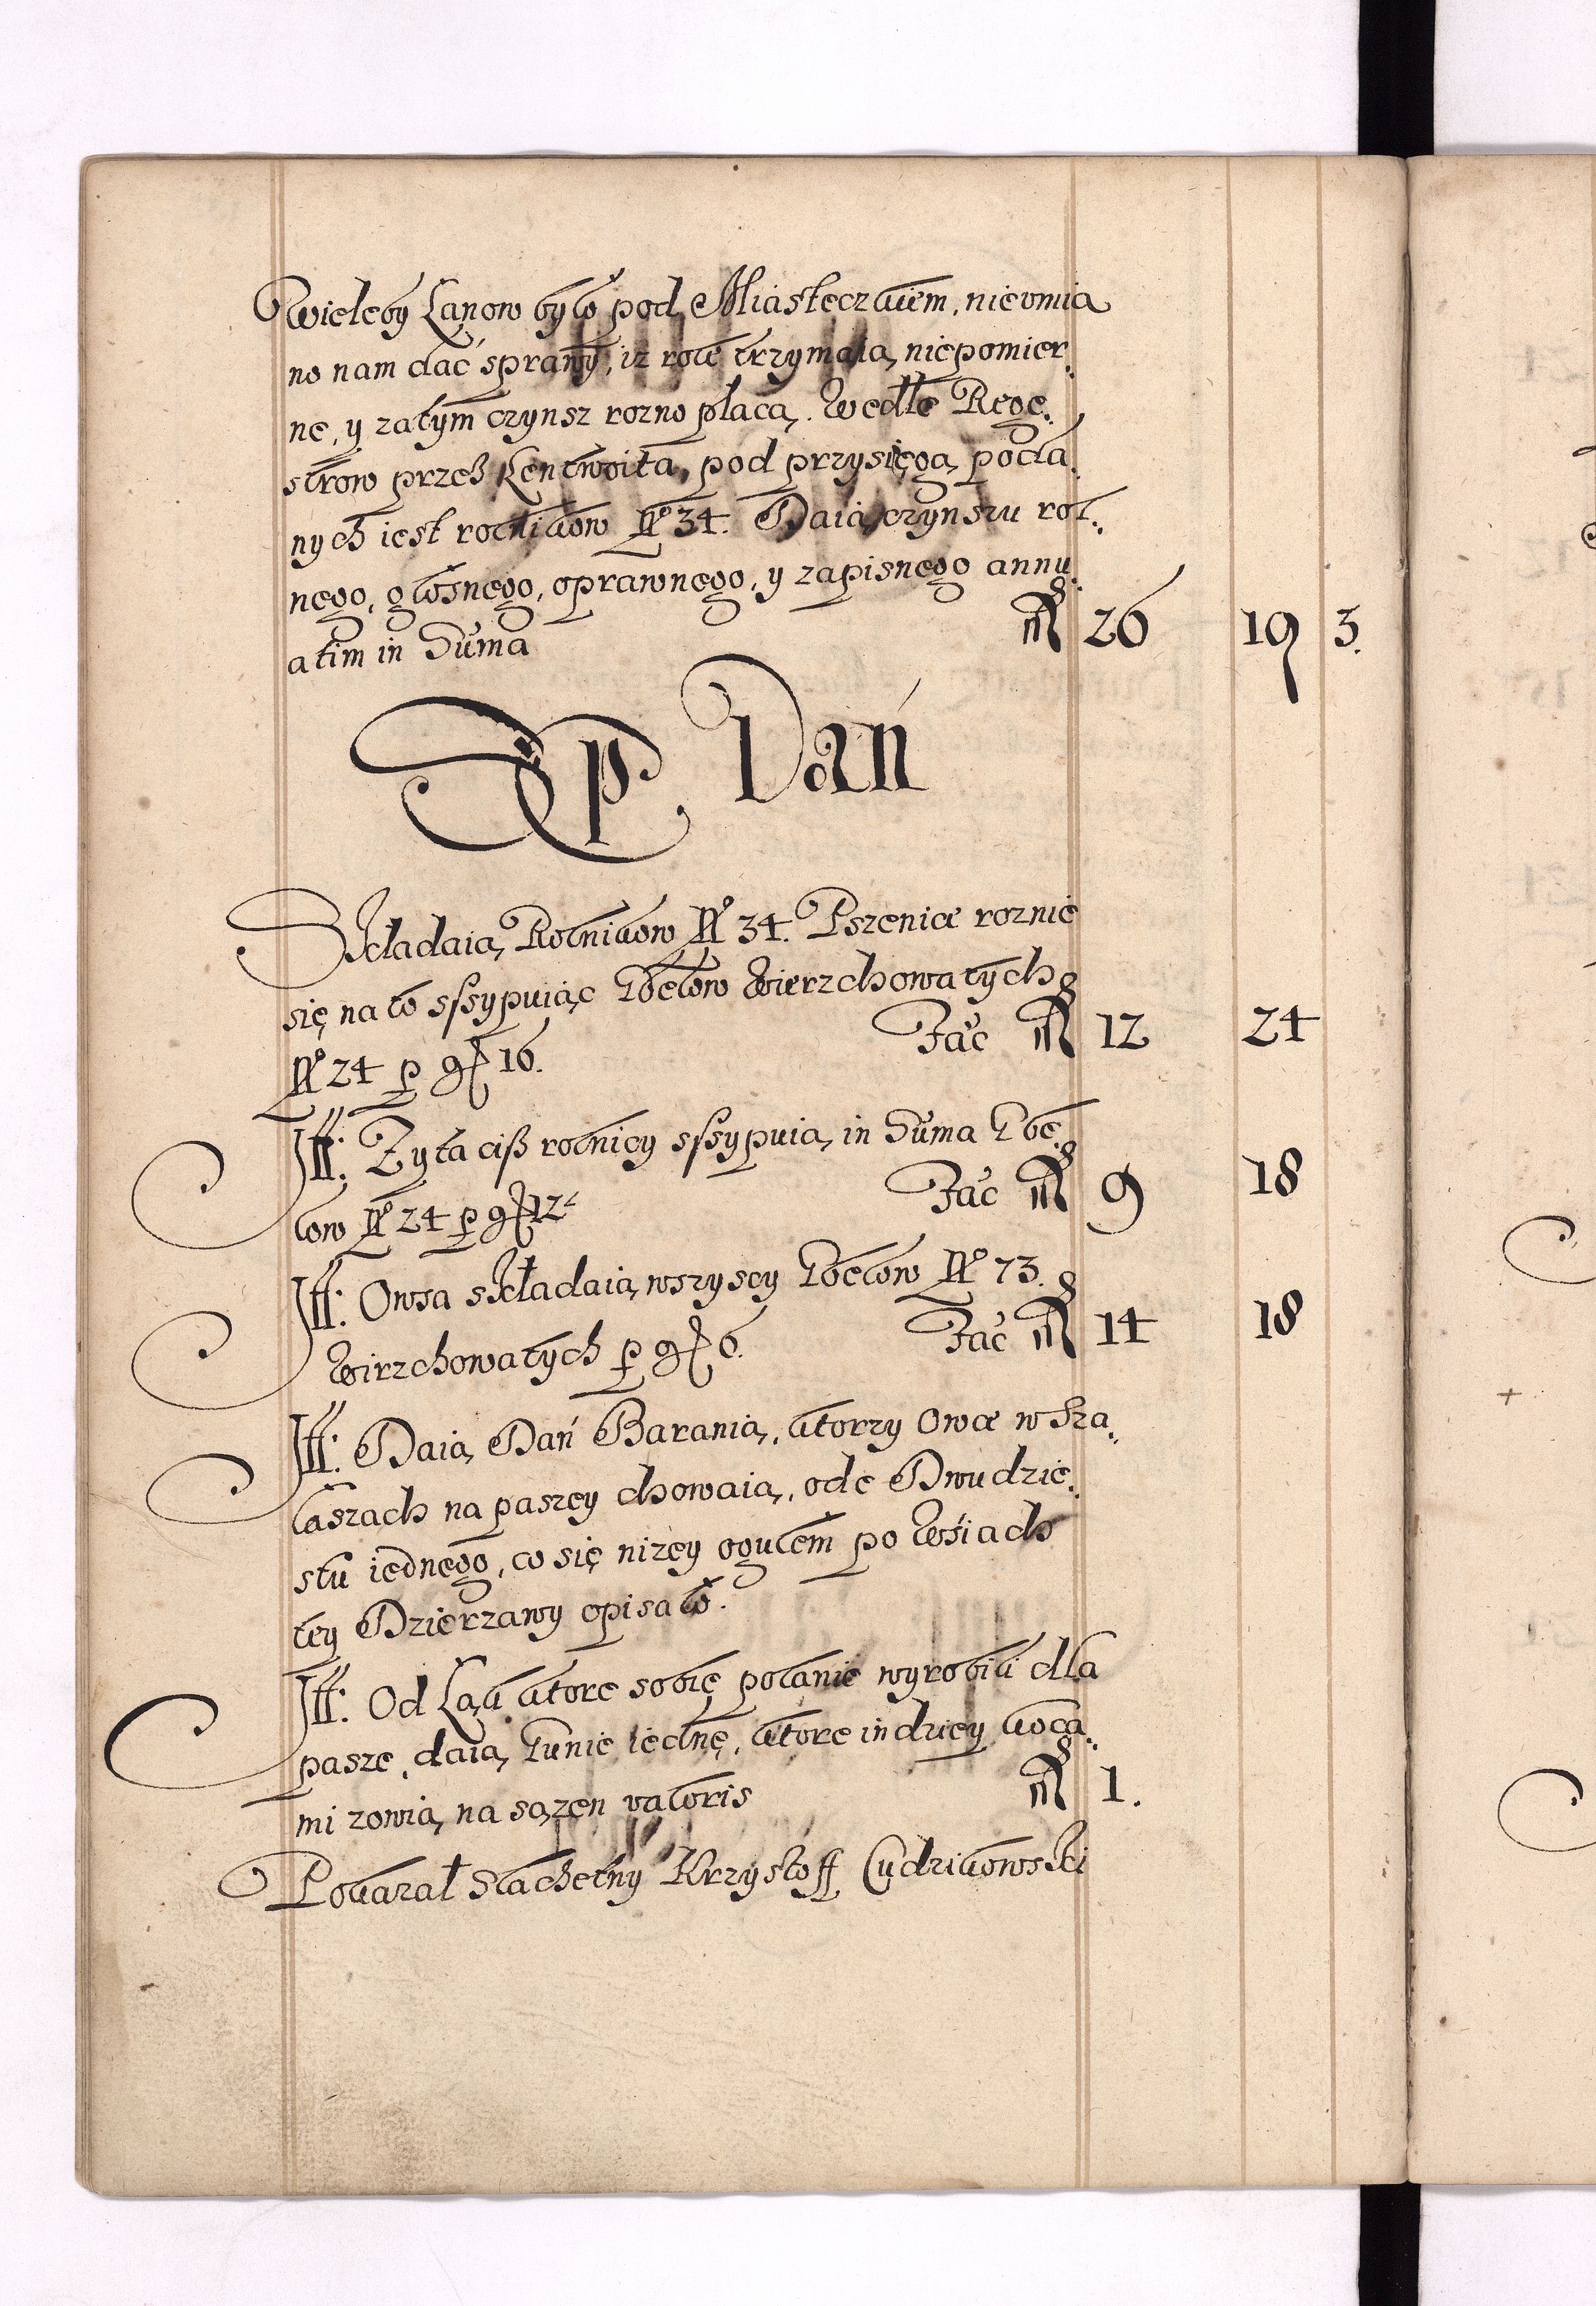 Wieleby Łanow było pod Miasteczkiem, nieumia
no nam dać sprawy, iz role trzymaią niepomier„
ne, y zatym czynsz rozno płacą. Wedle Rege„
strow przez Lentwoita, pod przysięgą, poda„
nych iest rolnikow N° 34. Daią czynszu rol„
nego, głosnego, oprawnego, y zapisnego annu„
atim in Suma m 26 19 3.
P. Dań
Składaią Rolnikow N° 34. Pszenice roznie
się na to sssypuiąc Kbełow Wierzchowatych
N° 24 p gr 16. Fac m 12 24
It: Zyta ciß rolnicy sssypuią in Suma Kbe„
łow N° 24 p gr 12 Fac m 9 18
It: Owsa składaią wszyscy Kbełow N° 73.
Wirzchowatych p gr 6. Fac m 14 18
It: Daią Dań Baranią, ktorzy Owce w Sza„
łaszach na paszey chowaią, ode Dwudzie„
stu iednego, co się nizey ogułem po Wsiach
tey Dzierzawy opisało.
It: Od Łąk ktore sobie polanie wyrobili dla
pasze, daią Kunie iedne, ktore indziey
mi zowią, na sązen valoris m 1.
Pokazał Slachetny Krzysztoff Cudzikowski